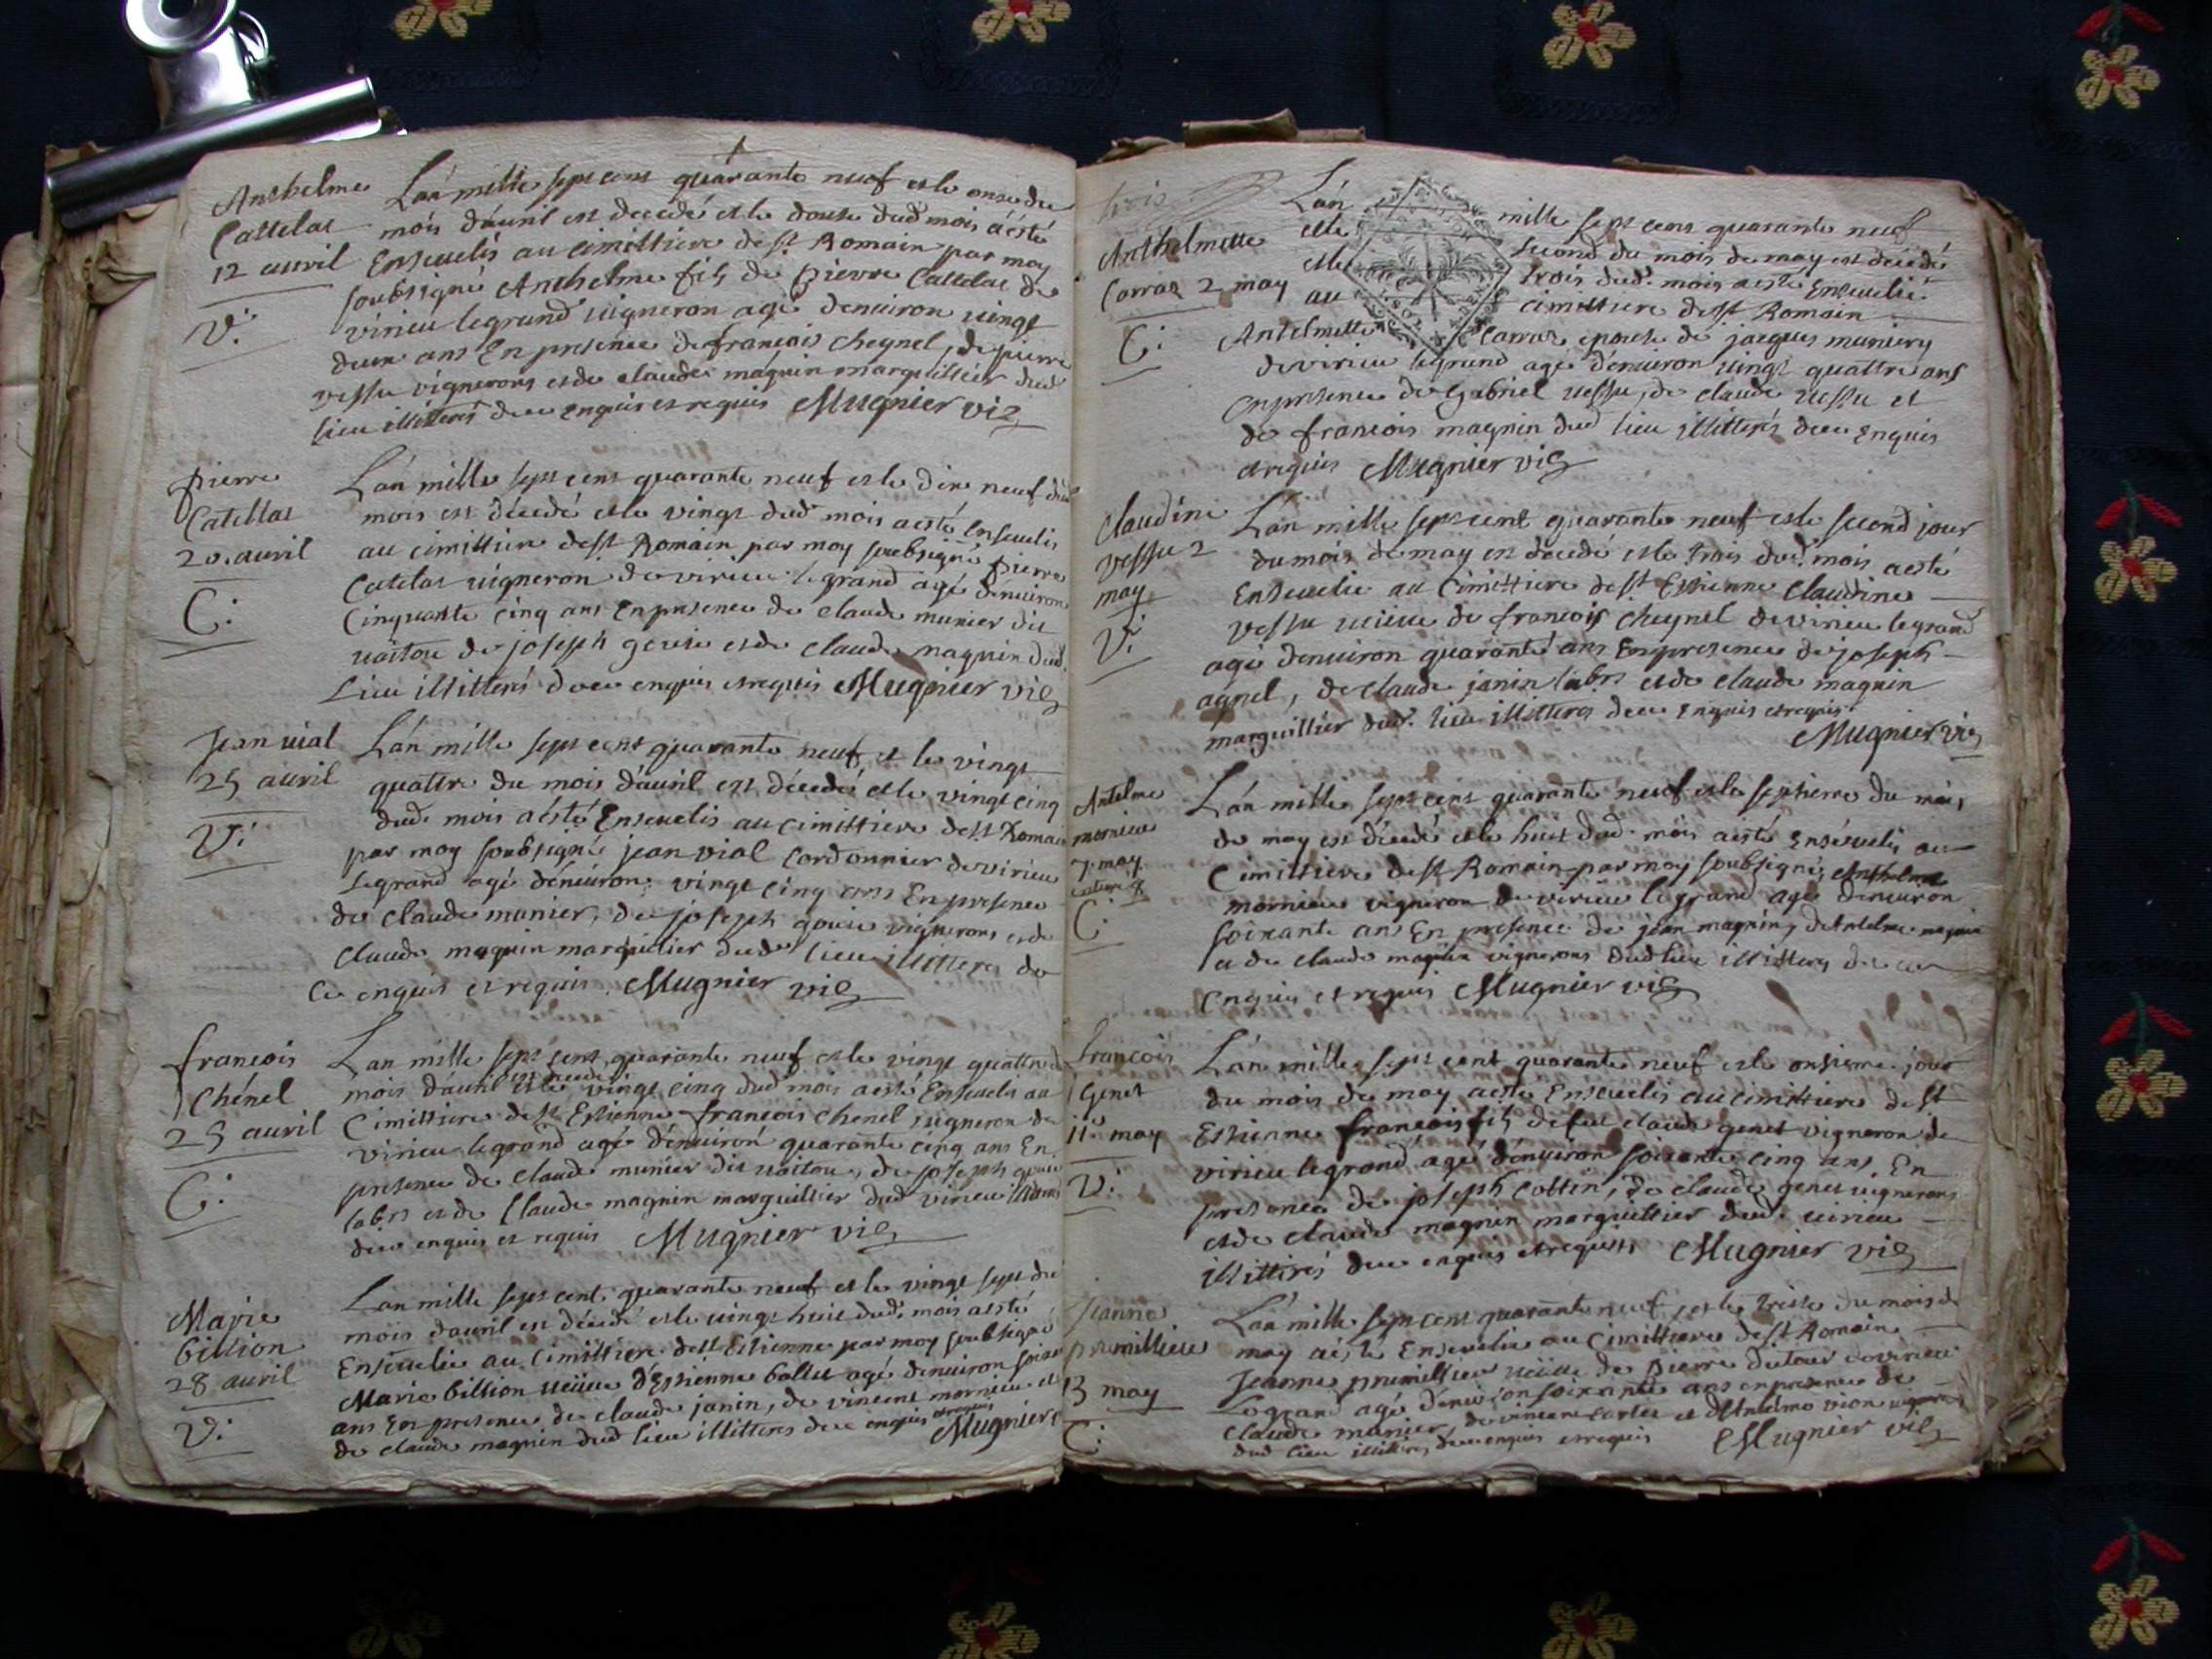 Anthelme
Catelat
12 auril
V:
Lán mille sept cent quárante neuf et le onse du
mois dáuril est decedé et le douse dud mois áesté
Enseuelis au cimittiere de st Romain par moy
soubsigné Anthelme fils de pierre Catelat de
virieu legrand uigneron agé denuiron uingt
deux ans En presence de francois cheynel, de pierre
vessu vignerons et de claude magnin marguillier dud
lieu illitterés de ce enquis et requis Mugnier vic
pierre
Catellat
20. auril
C:
Lán mille sept cent quarante neuf et le dix neuf dud
mois est decedé et le vingt dud mois aesté Enseuelis
au cimittiere de st Romain par moy soubsigné pierre
Catelat uigneron de virieu le grand agé dénuiron
Cinquante cinq ans En presence de claude munier dit
uaitou de joseph gouie et de claude magnin dud.
Lieu illitterés de ce enquis et requis Mugnier vic
Jean uial
25 áuril
V:
Lán mille sept cent quarante neuf et le vingt
quattre du mois dáuril est décedé et le vingt cinq
dud. mois aésté Enseuelis au cimittiere de st Romain
par moy soubsigné jean vial Cordonnier de virieu
Legrand agé dénuiron vingt cinq ans En presence
de claude munier, de joseph gouie vignerons et de
Claude magnin marguilier dud lieu illitterés de
Ce enquis et requis Mugnier vic
francois
Chénel
25 auril
C:
Lan mille sept cent quarante neuf et le vingt quattre d
est decedé
mois dauril et le vingt cinq dud mois aesté Enseuelis au
Cimittiere de st Estienne francois chenel uigneron de
virieu legrand agé dénuiron quarante cinq ans En
presence de claude munier dit uaitou, de joseph gouie
labrs et de Claude magnin marguillier dud virieu illitterés
de ce enquis et requis Mugnier vic
Marie
billion
28 auril
V:
Lan mille sept cent quarante neuf et le vingt sept du
mois dauril est décedé et le uingt huit dud. mois aesté
Enseuelie au Cimittiere de st Estienne par moy soubsigné
Marie billion ueüue d'Estienne ballet agé denuiron soixante
ans En presence de claude janin, de vincent mornieu et
de claude magnin dud lieu illitteres de ce enquis et requis
Mugnier
trois
Anthelmette
Carraz 2 may
C:
Lán mille sept cent quarante neuf
et le second du mois de may est decedé
et le trois dud. mois aesté Enseuelie
au cimittiere de st Romain
Antelmette Carraz epouse de jacques muniery
de virieu legrand agé dénuiron uingt quattre ans
En presence de gabriel uessu, de claude uessu et
de francois magnin dud lieu illitterés de ce enquis
et requis Mugnier vic
Claudine
vessu 2
may
V:
Lán mille sept cent quarante neuf et le second jour
du mois de may est decedé et le trois dud. mois aesté
Enseuelie au Cimittiere de st Estienne Claudine
vessu ueüue de francois cheynel de virieu legrand
agé denuiron quarante ans En presence de joseph
agnel, de claude janin labrs et de claude magnin
marguillier dud. lieu illitterés de ce enquis et requis
Mugnier vic
Antelme
mornieu
7 may
C:
Lán mille sept cent quarante neuf et le septieme du mois
de may est décedé et le huit dud. mois aesté Enséuelis au
Cimittiere de st Romain par moy soubsigné Anthelme
mornieu vigneron de virieu le grand agé denuiron
soixante ans En presence de jean magnin, de Antelme magnin
et de claude magnin vignerons dud lieu illitterés de ce
Enquis et requis Mugnier vic
francois
Genet
11e may
V:
Lán mille sept cent quarante neuf et le onsieme jour
du mois de may aesté Enseuelis au cimittiere de st
Estienne francois fils de feu claude genet vigneron de
virieu legrand agé dénuiron soixante cinq ans. En
presence de joseph Cottin, de claude genet uignerons
et de claude magnin marguillier dud. uirieu
illitterés de ce enquis et requis Mugnier vic
Jeanne
prumillieu
13 may
C:
Lán mille sept cent quarante neuf, et le treise du mois de
may aésté Enseuelie au Cimittiere de st Romain
Jeanne prumillieu ueüue de pierre de virieu
Legrand agé dénuiron soixante ans en presence de
Claude munier, de vincent et dAntelme vion
dud lieu illitterés de ce enquis et requis Mugnier vic